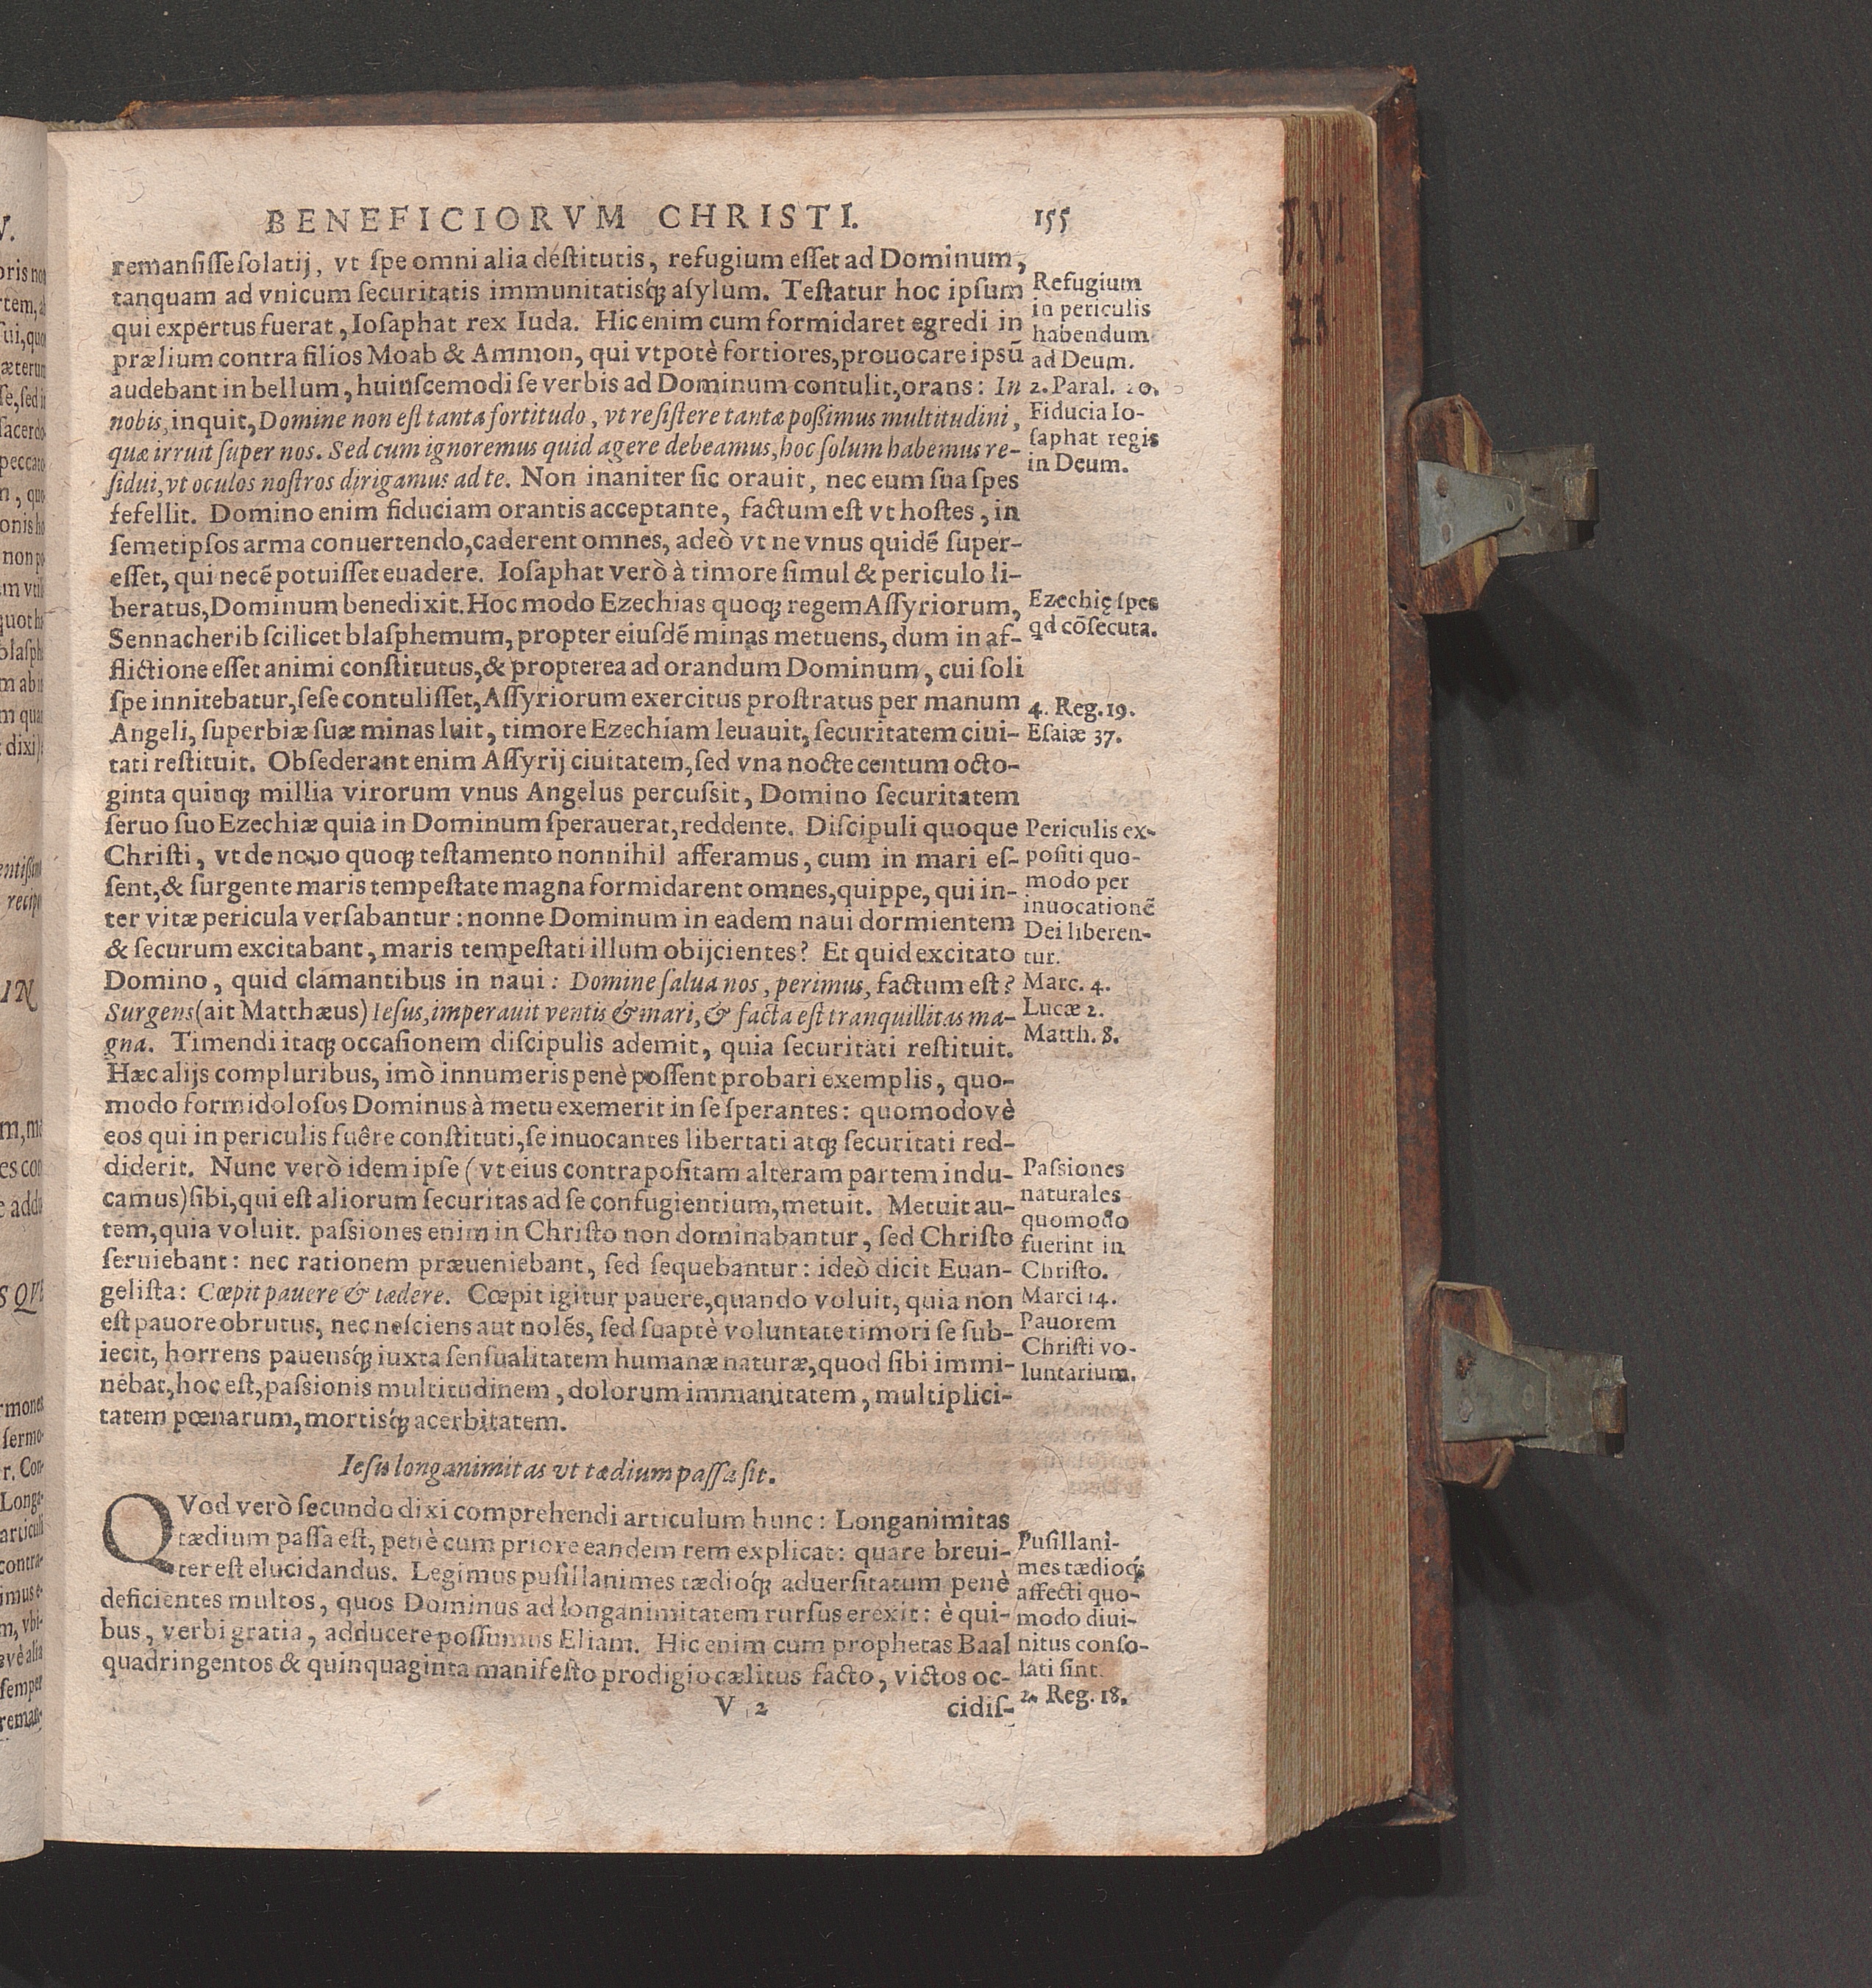 BENEFICIORVM CHRISTI. 155
remansisse solatij, vt spe omni alia destitutis, refugium esset ad Dominum,
tanquam ad vnicum securitatis immunitatisq́; asylum. Testatur hoc ipsum
qui expertus fuerat, Iosaphat rex Iuda. Hic enim cum formidaret egredi in
prælium contra filios Moab & Ammon, qui vtpotè fortiores, prouocare ipsũ
audebant in bellum, huiuscemodi se verbis ad Dominum contulit, orans: In
nobis, inquit, Domine non est tanta fortitudo, vt resistere tantæ possimus multitudini,
quæ irruit super nos. Sed cum ignoremus quid agere debeamus, hoc solum habemus re-
sidui, vt oculos nostros dirigamus ad te. Non inaniter sic orauit, nec eum sua spes
fefellit. Domino enim fiduciam orantis acceptante, factum est vt hostes, in
semetipsos arma conuertendo, caderent omnes, adeò vt ne vnus quidẽ super-
esset, qui necẽ potuisset euadere. Iosaphat verò à timore simul & periculo li-
beratus, Dominum benedixit. Hoc modo Ezechias quoq; regem Assyriorum,
Sennacherib scilicet blasphemum, propter eiusdẽ minas metuens, dum in af-
flictione esset animi constitutus, & propterea ad orandum Dominum, cui soli
spe innitebatur, sese contulisset, Assyriorum exercitus prostratus per manum
Angeli, superbiæ suæ minas luit, timore Ezechiam leuauit, securitatem ciui-
tati restituit. Obsederant enim Assyrij ciuitatem, sed vna nocte centum octo-
ginta quinq; millia virorum vnus Angelus percussit, Domino securitatem
seruo suo Ezechiæ quia in Dominum sperauerat, reddente. Discipuli quoque
Christi, vt de nouo quoq; testamento nonnihil afferamus, cum in mari es-
sent, & surgente maris tempestate magna formidarent omnes, quippe, qui in-
ter vitæ pericula versabantur: nonne Dominum in eadem naui dormientem
& securum excitabant, maris tempestati illum obijcientes? Et quid excitato
Domino, quid clamantibus in naui: Domine salua nos, perimus, factum est?
Surgens (ait Matthæus) Iesus, imperauit ventis & mari, & facta est tranquillitas ma-
gna. Timendi itaq; occasionem discipulis ademit, quia securitati restituit.
Hæc alijs compluribus, imò innumeris penè possent probari exemplis, quo-
modo formidolosos Dominus à metu exemerit in se sperantes: quomodovè
eos qui in periculis fuêre constituti, se inuocantes libertati atq; securitati red-
diderit. Nunc verò idem ipse (vt eius contrapositam alteram partem indu-
camus) sibi, qui est aliorum securitas ad se confugientium, metuit. Metuit au-
tem, quia voluit. passiones enim in Christo non dominabantur, sed Christo
seruiebant: nec rationem præueniebant, sed sequebantur: ideò dicit Euan-
gelista: Cœpit pauere & tædere. Cœpit igitur pauere, quando voluit, quia non
est pauore obrutus, nec nesciens aut nolẽs, sed suaptè voluntate timori se sub-
iecit, horrens pauensq́; iuxta sensualitatem humanæ naturæ, quod sibi immi-
nebat, hoc est, passionis multitudinem, dolorum immanitatem, multiplici-
tatem pœnarum, mortisq́; acerbitatem.
Iesu longanimitas vt tædium passa sit.
QVod verò secundo dixi comprehendi articulum hunc: Longanimitas
tædium passa est, penè cum priore eandem rem explicat: quare breui-
ter est elucidandus. Legimus pusillanimes tædioq́; aduersitatum penè
deficientes multos, quos Dominus ad longanimitatem rursus erexit: è qui-
bus, verbi gratia, adducere possumus Eliam. Hic enim cum prophetas Baal
quadringentos & quinquaginta manifesto prodigio cælitus facto, victos oc-
V 2 cidis-
Refugium
in periculis
habendum
ad Deum.
2. Paral. 20.
Fiducia Io-
saphat regis
in Deum.
Ezechię spes
qd cõsecuta.
4. Reg. 19.
Esaiæ 37.
Periculis ex-
positi quo-
modo per
inuocationẽ
Dei liberen-
tur.
Marc. 4.
Lucæ 2.
Matth. 8.
Passiones
naturales
quomodo
fuerint in
Christo.
Marci 14.
Pauorem
Christi vo-
luntarium.
Pusillani-
mes tædioq́;
affecti quo-
modo diui-
nitus conso-
lati sint.
2. Reg. 18.